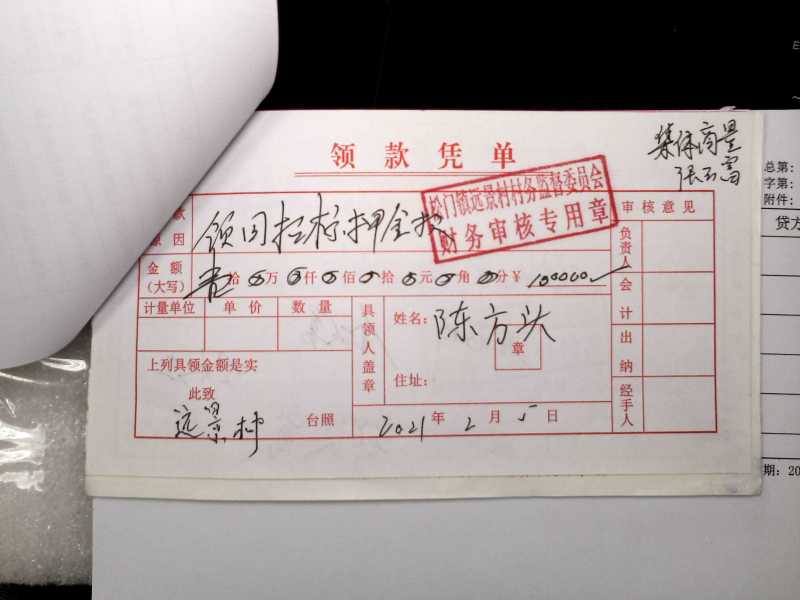 集体商量
张玉富
领款凭单
总第:
字第:
附件:
贷方
松门镇远景村村务监督委员会
财务审核专用章
款
原因
领回招标押金款
审核意见
金额
(大写)
壹拾 万 仟 佰 拾 元 角 分 ¥ 100000
负责人
计量单位 单价 数量
具领人盖章
姓名: 陈方头
章
会计
上列具领金额是实
住址:
出纳
此致
远景村 台照
2021年2月5日
经手人
期: 20